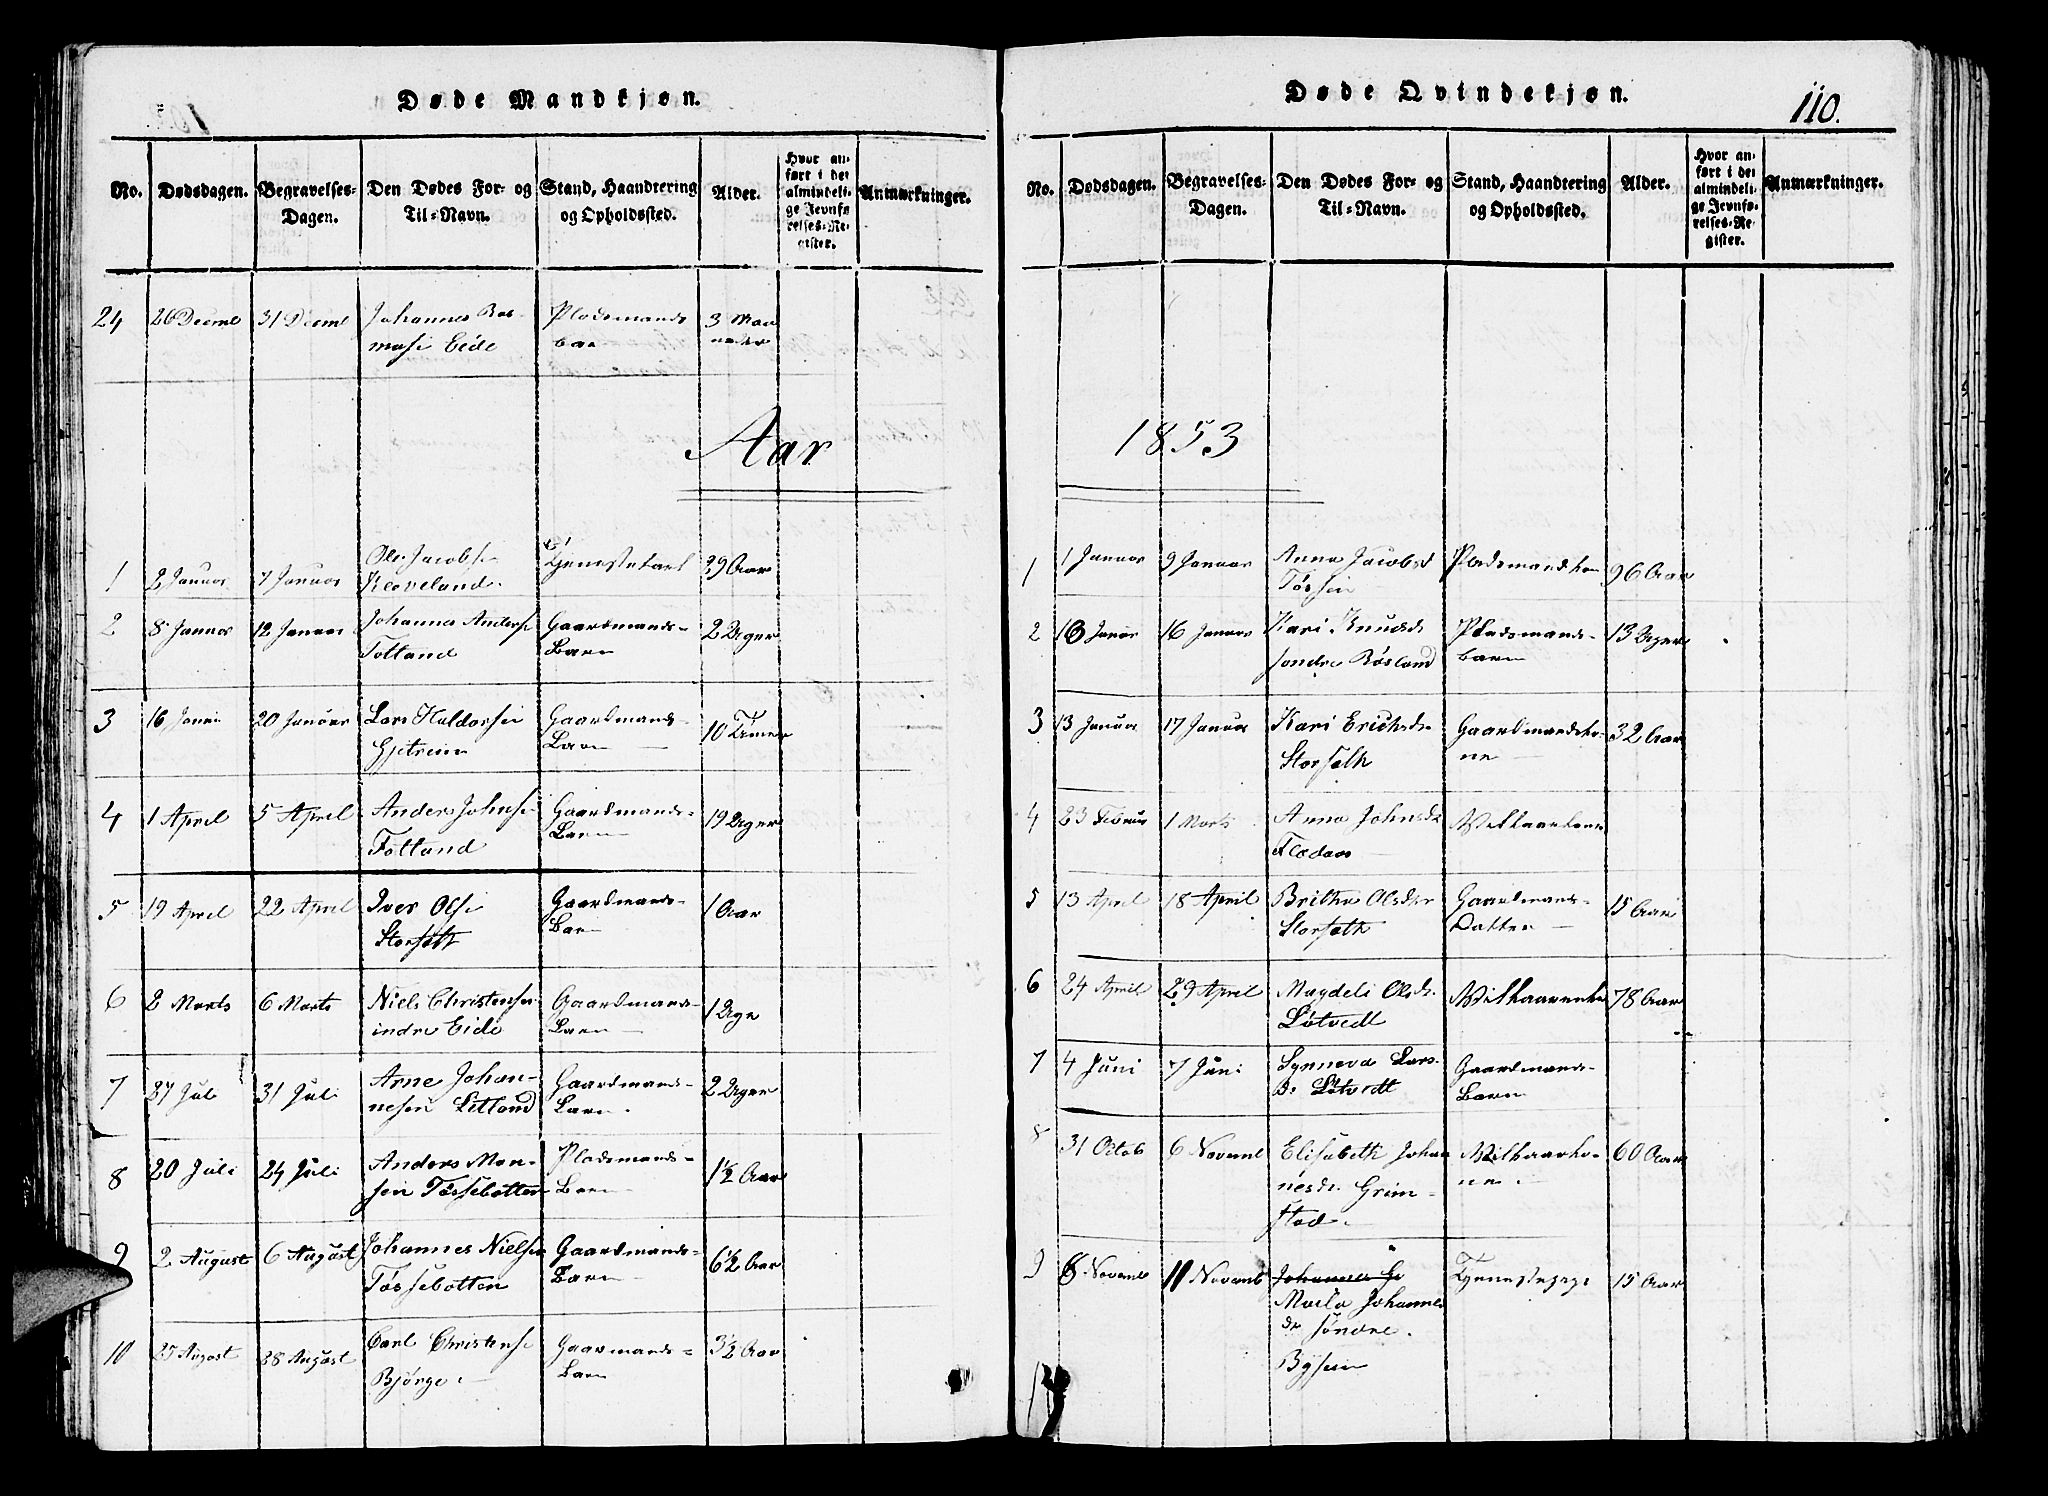 Døde Mandkjøn.
No. Dødsdagen. Begravelses-Dagen. Den Dødes For- og Til-Navn. Stand, Haandtering og Opholdssted. Alder. Hvor anført i det almindelige Jevnførelses-Register. Anmærkninger.
24 26 Decmb 31 Decmb Johannes Ras-
muss: Eide Pladsmands
3 Maa
neder
Aar
1 2 Januar 7 Januar Ole Jacobs:
Kloveland. Tjenestekarl 29 Aar
2 8 Januar 12 Januar Johannes Anders:
Totland Gaardmands-
Barn 2 Uger
3 16 Januar 20 Januar Lars Haldorsen
Gjitreim Gaardmands-
Barn 10 Timer
4 1 April 5 April Anders Johns:
Totland Gaardmands-
Barn 19 Uger
5 19 April 22 April Iver Ols:
Storsæth Gaardmands-
Barn 1 Aar
6 2 Marts 6 Marts Niels Christens:
indre Eide Gaardmands-
Barn 1 Uge
7 27 Juli 31 Juli Arne Johan-
nesen Litland Gaardmands-
Barn. 2 Uger
8 20 Juli 24 Juli Anders Mon-
sen Tøssebotten Pladsmands-
Barn 1½ Aar
9 2 August 6 August Johannes Niels:
Tøssebotten Gaardmands-
Barn 6½ Aar
10 25 August 28 August Carl Christens:
Bjørge. Gaarmands-
Barn 3½ Aar
Døde Qvindekjøn.
110.
No. Dødsdagen. Begravelses-Dagen. Den Dødes For- og Til-Navn. Stand, Haandtering og Opholdssted. Alder. Hvor anført i det almindelige Jevnførelses-Register. Anmærkninger.
1853
1 1 Januar 9 Januar Anna Jacobsd
Tøssen Pladsmandskon 96 Aar
2 10 Januar 16 Januar Kari Knudsd:
søndre Røsland Pladsmands-
barn 13 Uger
3 13 Januar 17 Januar Kari Erichsd:
Storsæth Gaardmandsko-
ne 32 Aar
4 23 Februar 1 Marts Anna Johnsd:
Flodaas Vilkaarkone
5 13 April 18 April Britha Olsdr
Storsæth Gaardmands-
Datter 15 Aar
6 24 April 29 April Magdeli Olsd:
Løtvedt Vilkaarenke 78 Aar
7 4 Juni 7 Juni Synneva Lars-
D: Løtvedt Gaardmands-
Barn
8 31 Octob 6 Novemb Elisabeth Johan
nesd: Grim-
stad. Vilkaarko-
ne. 60 Aar
9 8 Novemb 11 Novemb Johannes
Marta Johannes
dr søndre.
Tjenestepige 15 Aar